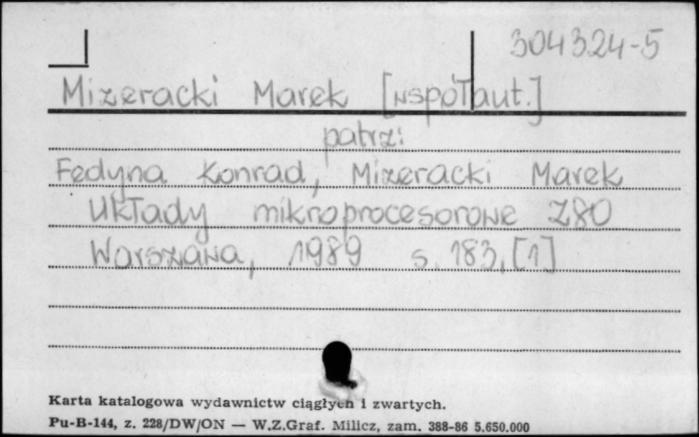 304324-5
Mizeracki Marek [współaut.]
patrz:
Fedyna Konrad, Mizeracki Marek
Układy mikroprocesorowe Z80
Warszawa, 1989 s. 183, [1]
Karta katalogowa wydawnictw ciągłych i zwartych.
Pu-B-144, z. 228/DW/ON — W.Z.Graf. Milicz, zam. 388-86 5.650.000